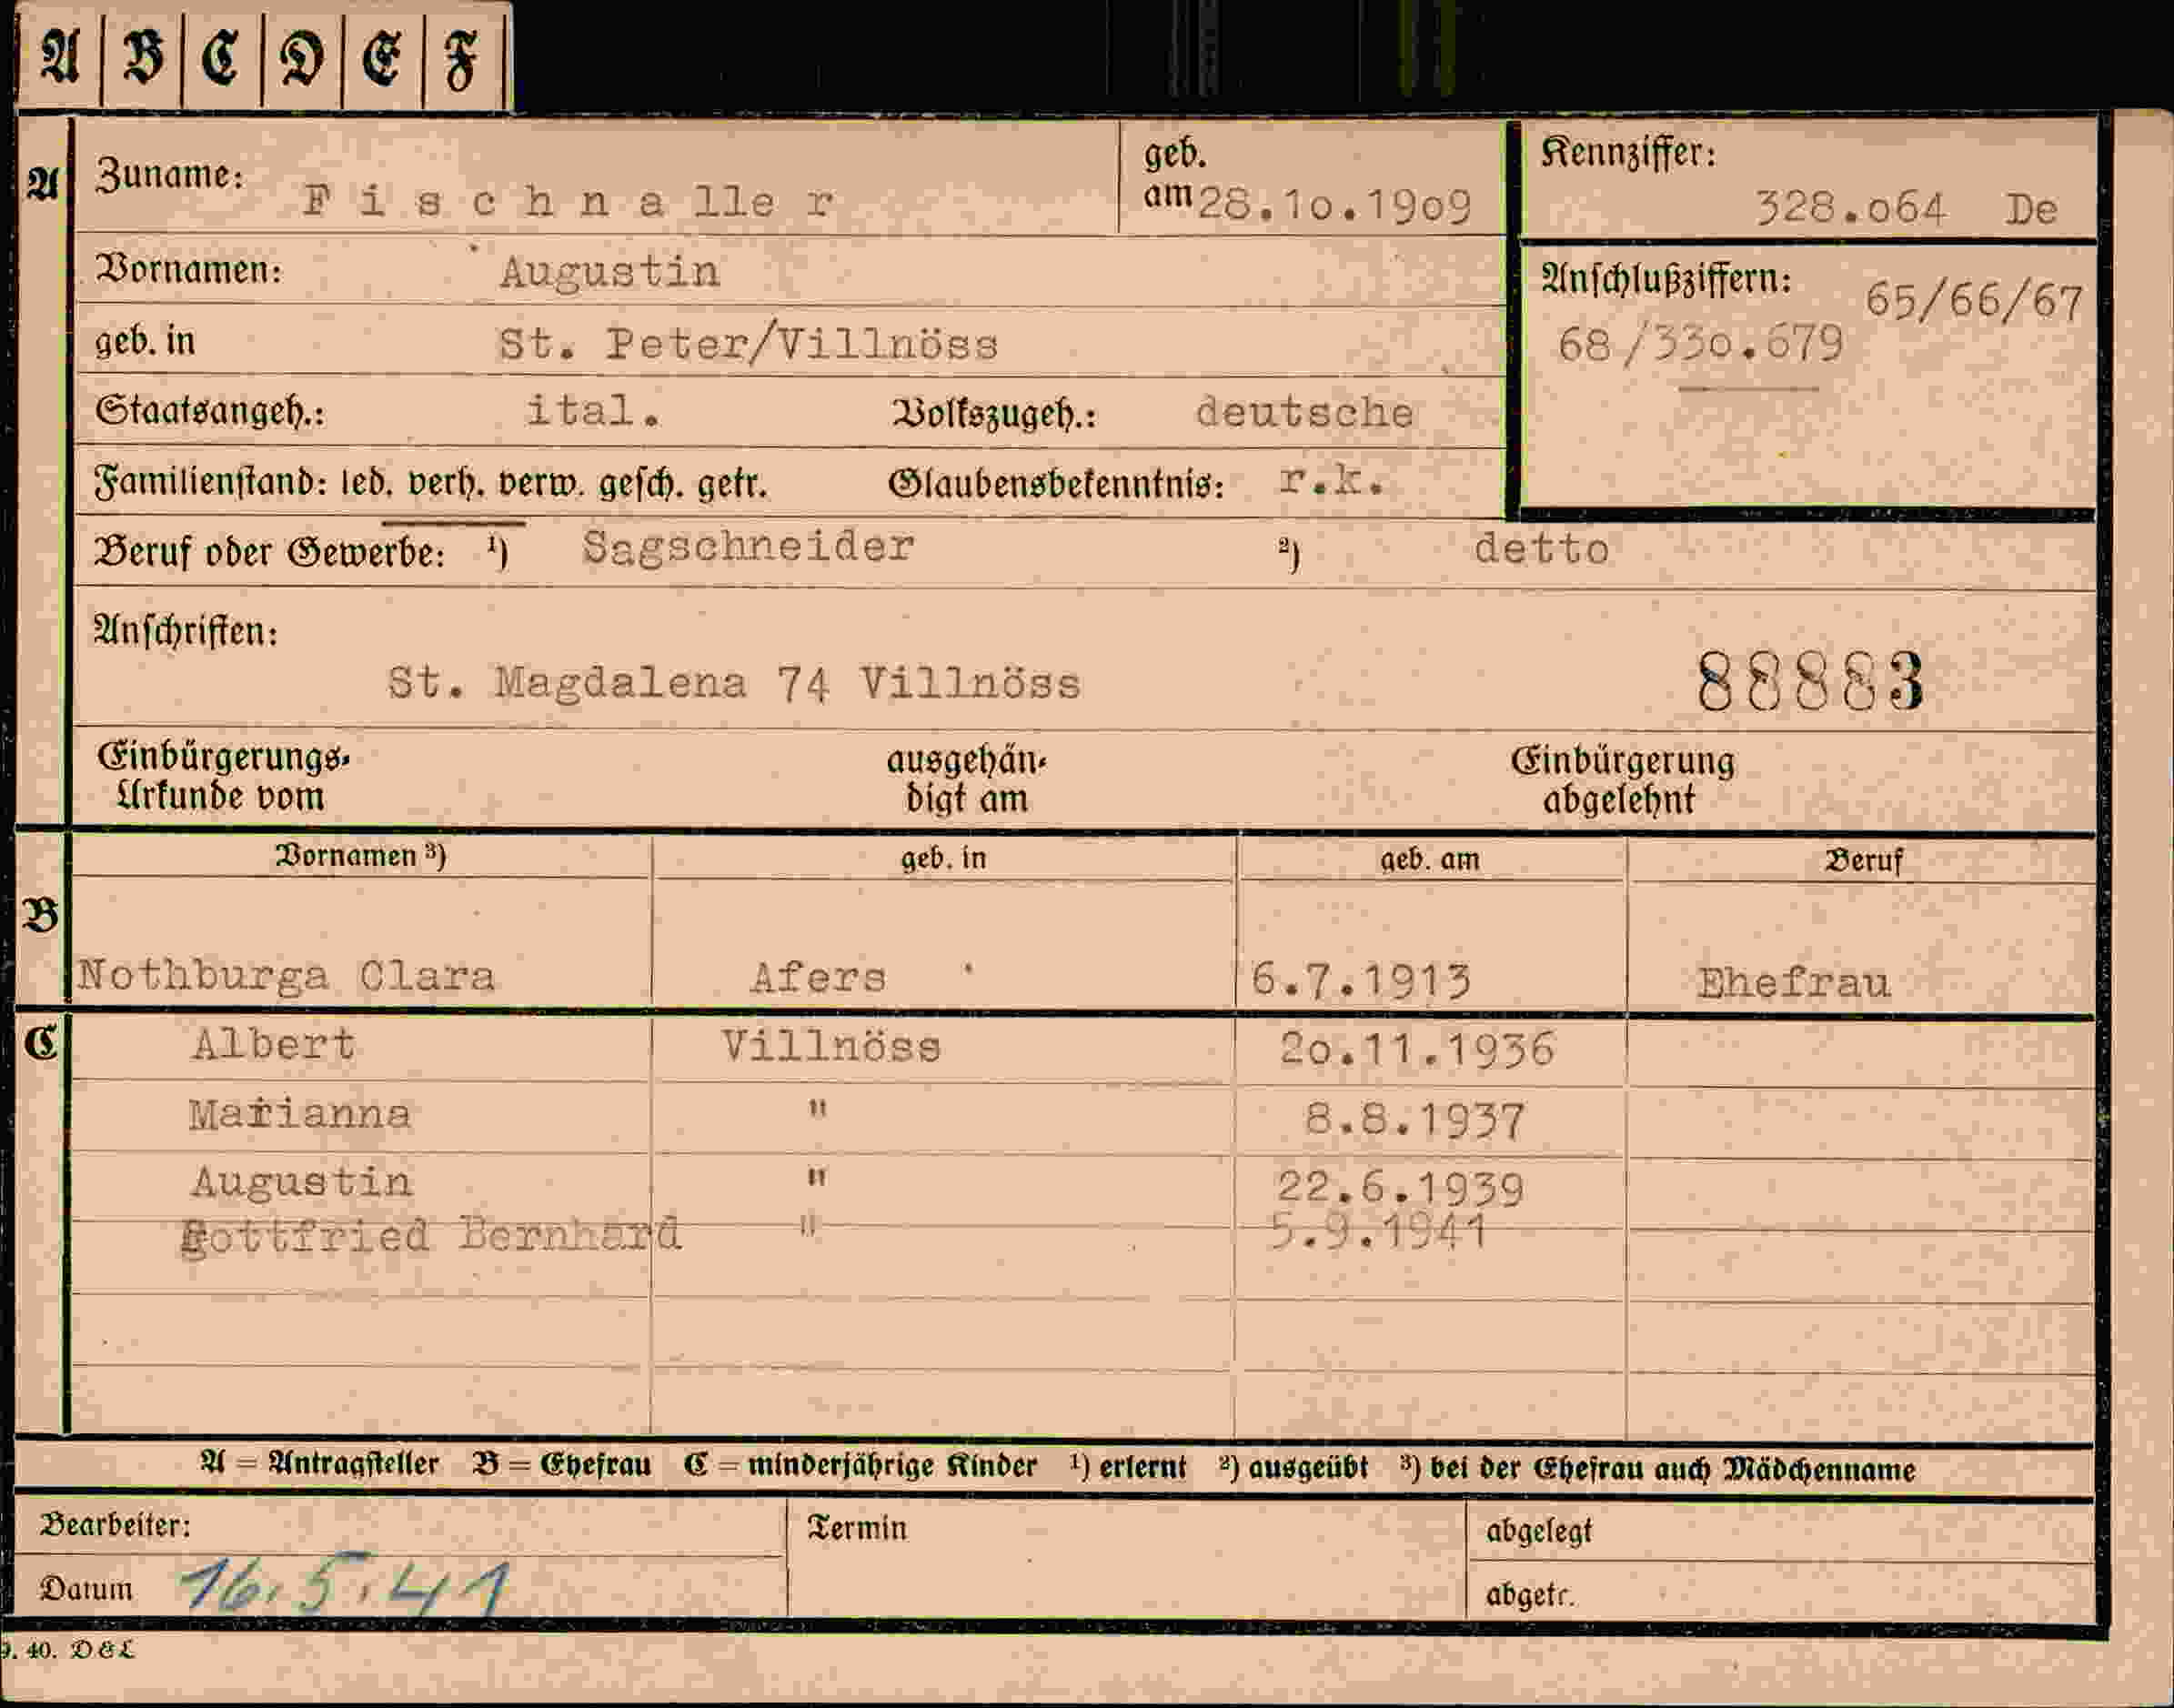 A B C D E F
A Zuname: Fischnaller geb. am 28.10.1909 Kennziffer: 328.064 De
Vornamen: Augustin Anschlußziffern: 65/66/67
geb. in St. Peter/Villnöss 68/330.679
Staatsangeh.: ital. Volkszugeh.: deutsche
Familienstand: led. verh. verw. gesch. getr. Glaubensbekenntnis: r.k.
Beruf oder Gewerbe: ¹) Sagschneider ²) detto
Anschriften:
St. Magdalena 74 Villnöss 88883
Einbürgerungs- ausgehän- Einbürgerung
Urkunde vom digt am abgelehnt
Vornamen ³) geb. in geb. am Beruf
B
Nothburga Clara Afers 6.7.1913 Ehefrau
C Albert Villnöss 20.11.1936
Marianna " 8.8.1937
Augustin " 22.6.1939
Gottfried Bernhard " 5.9.1941
A = Antragsteller B = Ehefrau C = minderjährige Kinder ¹) erlernt ²) ausgeübt ³) bei der Ehefrau auch Mädchenname
Bearbeiter: Termin abgelegt
Datum 16.5.41 abgetr.
9. 40. D & L